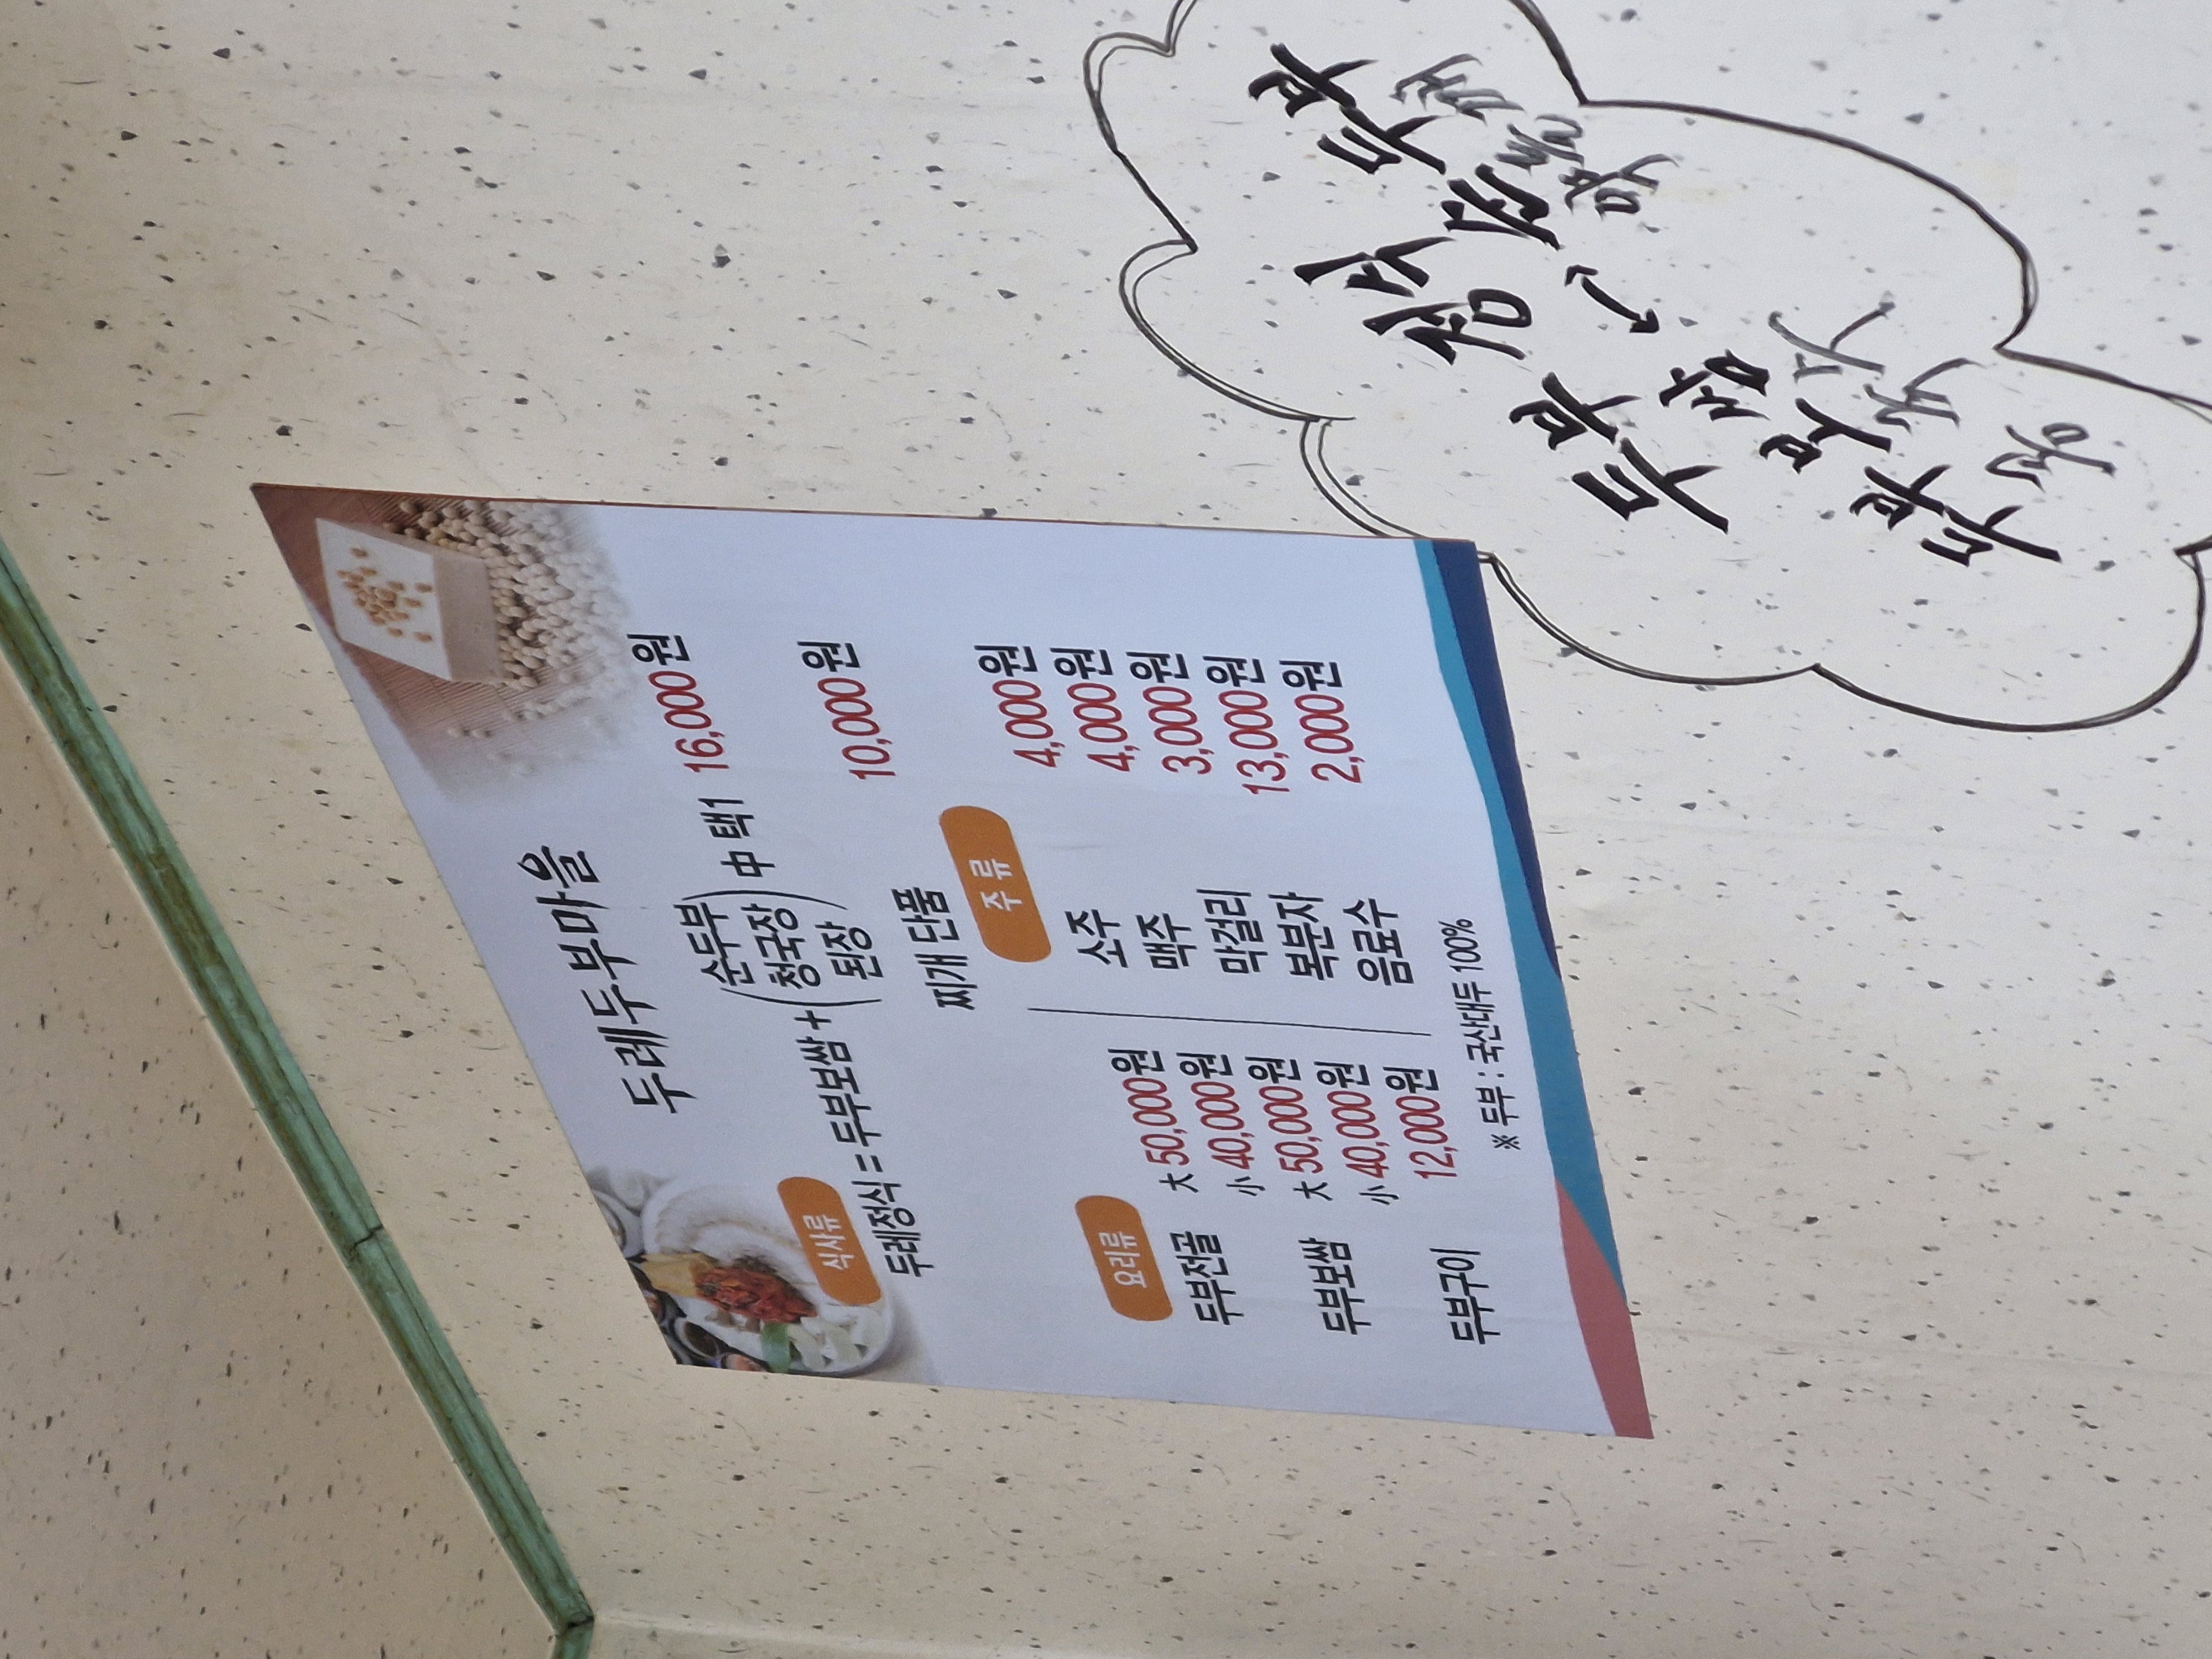 두레두부마을
식사류
두레정식 = 두부보쌈 + (순두부 청국장 된장) 中 택1 16,000원
찌개 단품 10,000원
요리류
두부전골 大 50,000원
小 40,000원
두부보쌈 大 50,000원
小 40,000원
두부구이 12,000원
주류
소주 4,000원
맥주 4,000원
막걸리 3,000원
복분자 13,000원
음료수 2,000원
※ 두부 : 국산대두 100%
두부
정식
두부
보쌈
두부